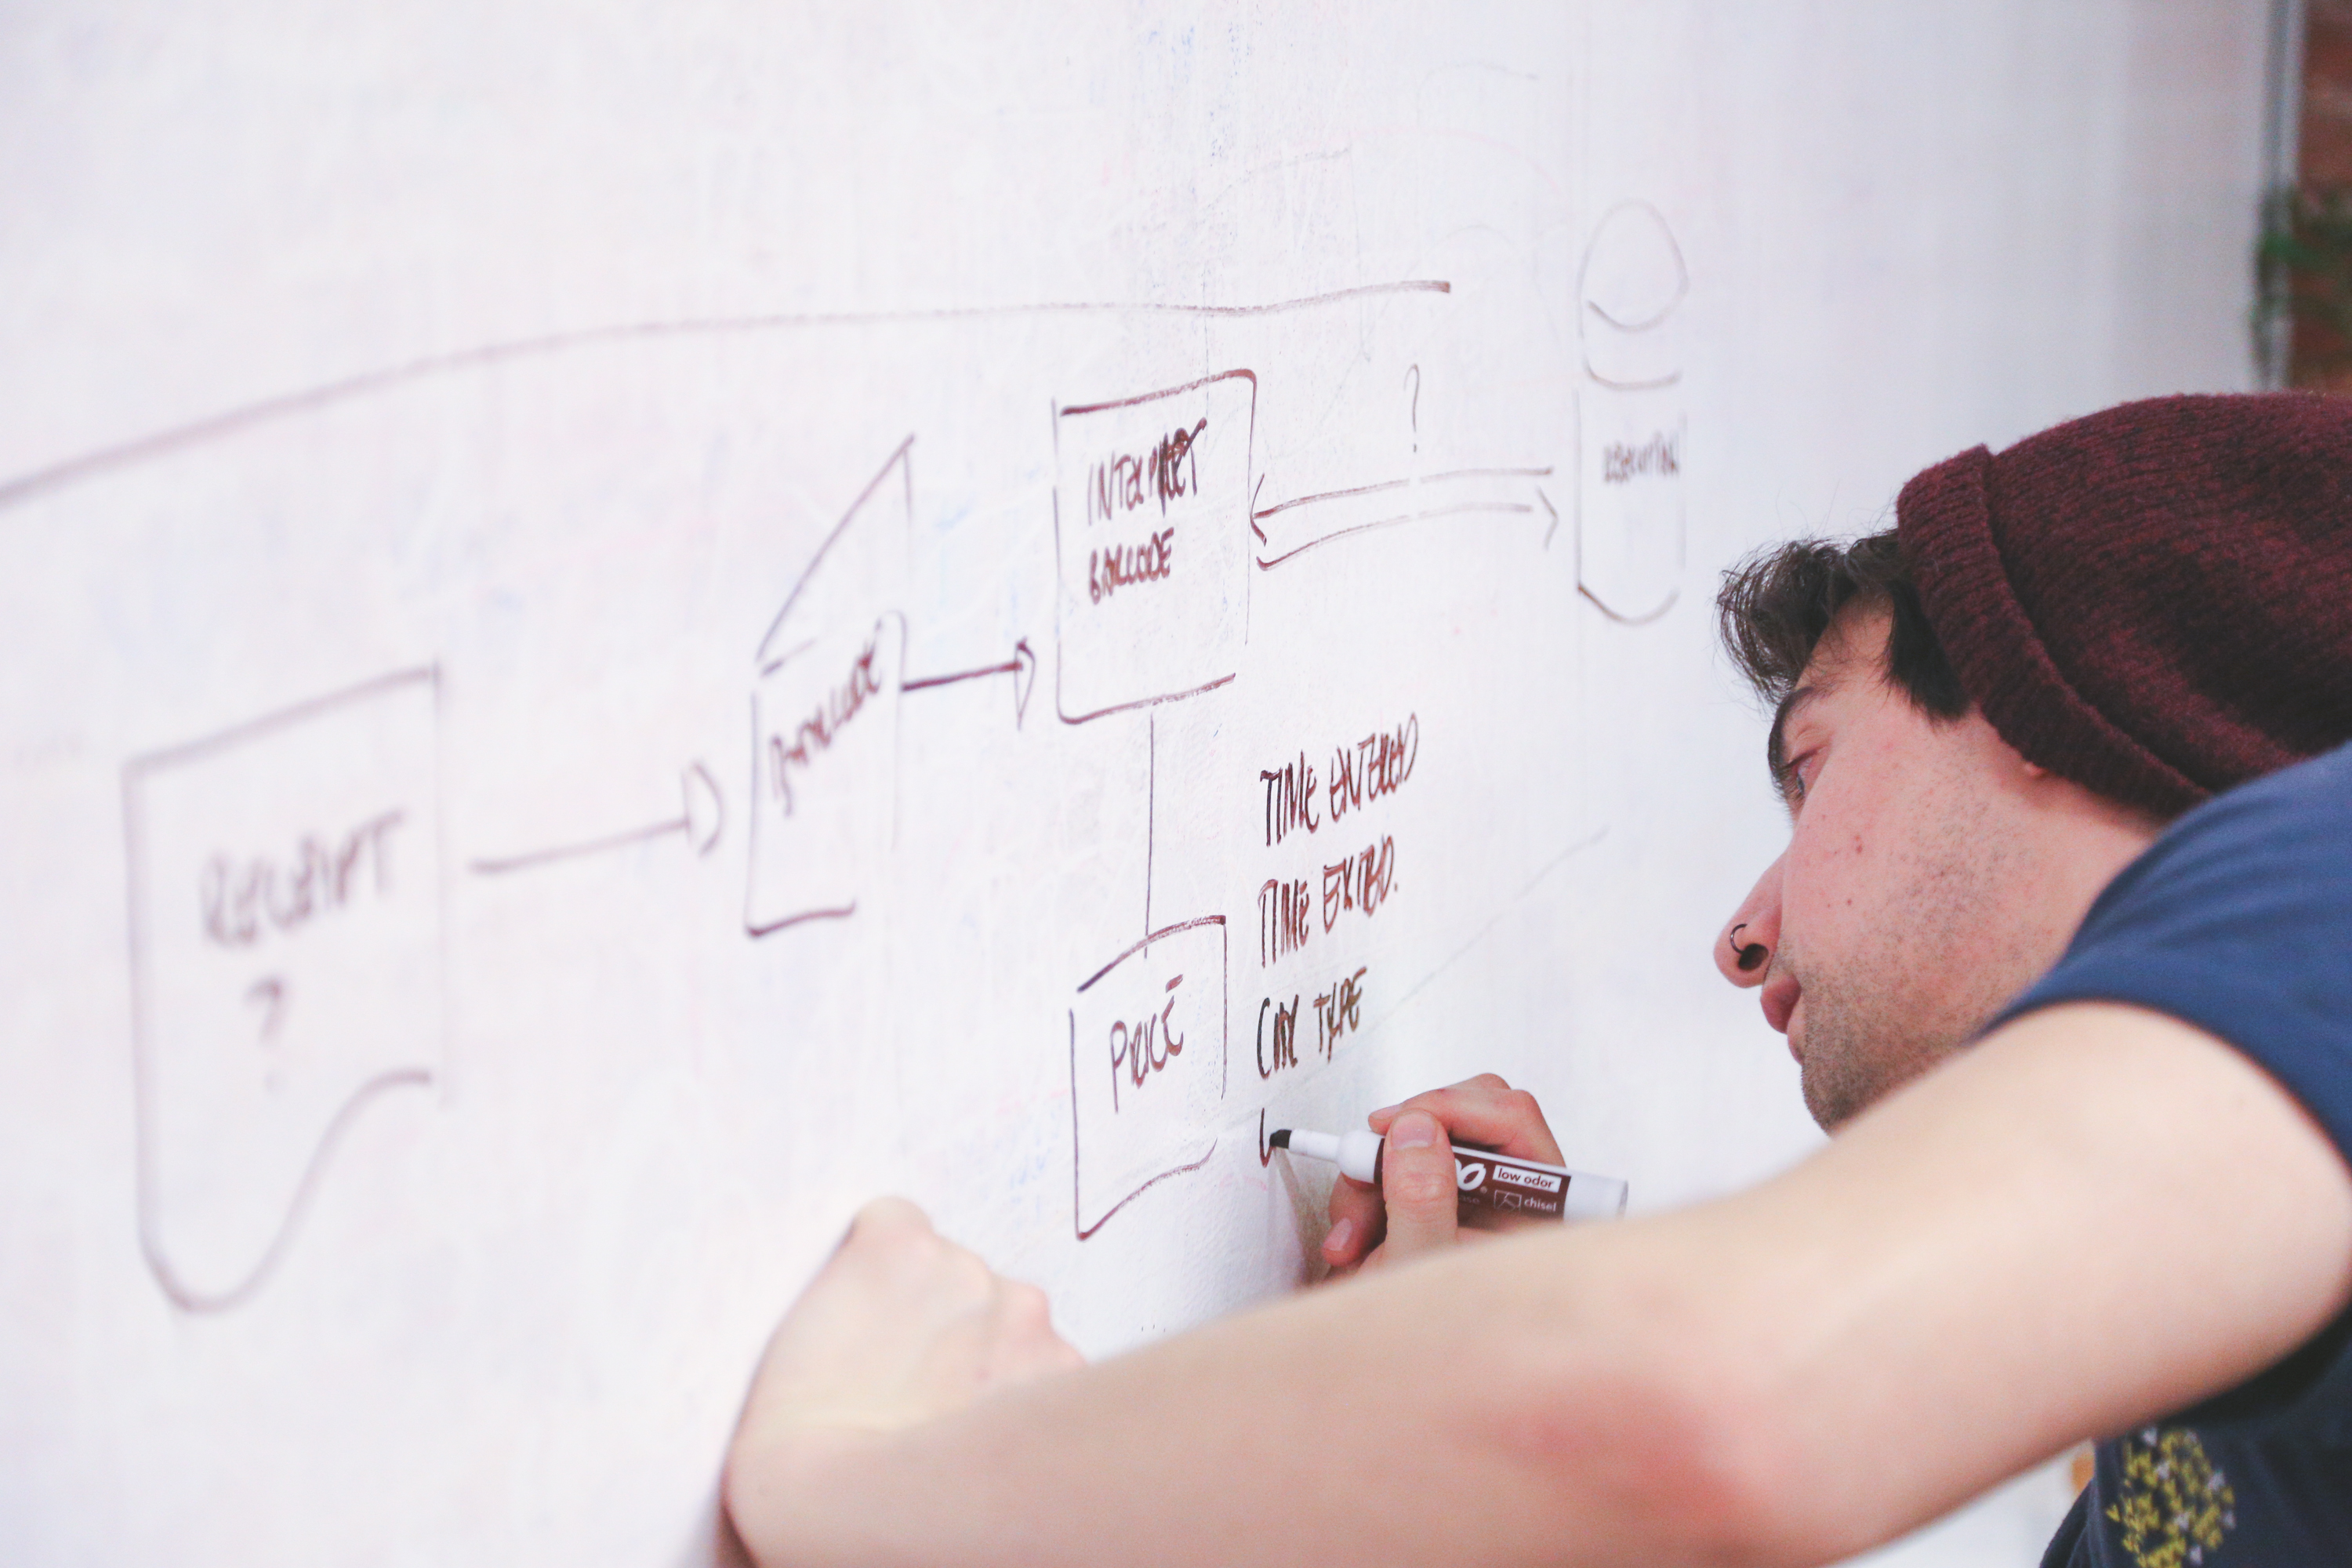 RECEIPT
?
BARCODE
INTERPRET
BARCODE
?
PRICE
TIME ENTERED
TIME EXITED.
CAR TYPE
L
low odor
chisel